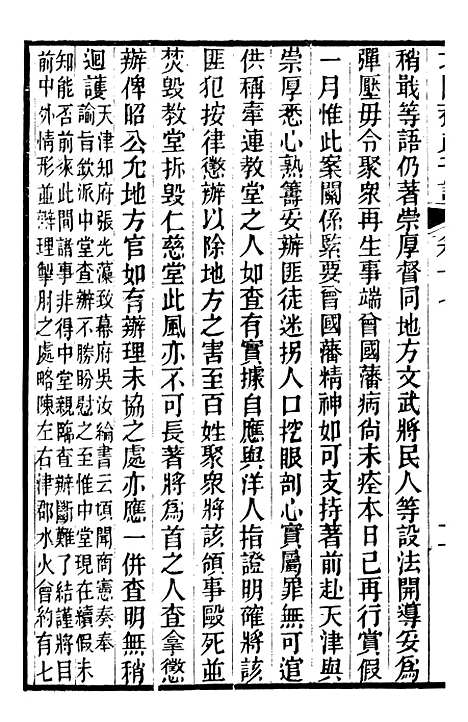 稍戢等語仍著崇厚督同地方文武將民人等設法開導妥為
彈壓毋令聚衆再生事端曾國藩病尚未痊本日已再行賞假
一月惟此案關係緊要曾國藩精神如可支持著前赴天津與
崇厚悉心熟籌妥辦匪徒迷拐人口挖眼剖心實屬罪無可逭
供稱牽連教堂之人如查有實據自應與洋人指證明確將該
匪犯按律懲辦以除地方之害至百姓聚衆將該領事毆死並
焚毀教堂拆毀仁慈堂此風亦不可長著將為首之人查拿懲
辦俾昭公允地方官如有辦理未協之處亦應一併查明無稍
迴護天津知府張光藻致幕府吳汝綸書云頃聞商憲奏奉
諭旨欽派中堂查辦不勝盼慰之至惟中堂現在續假未
知能否前來此間諸事非得中堂親臨查辦斷難了結謹將目
前中外情形並辦理掣肘之處略陳左右津郡水火會約有七